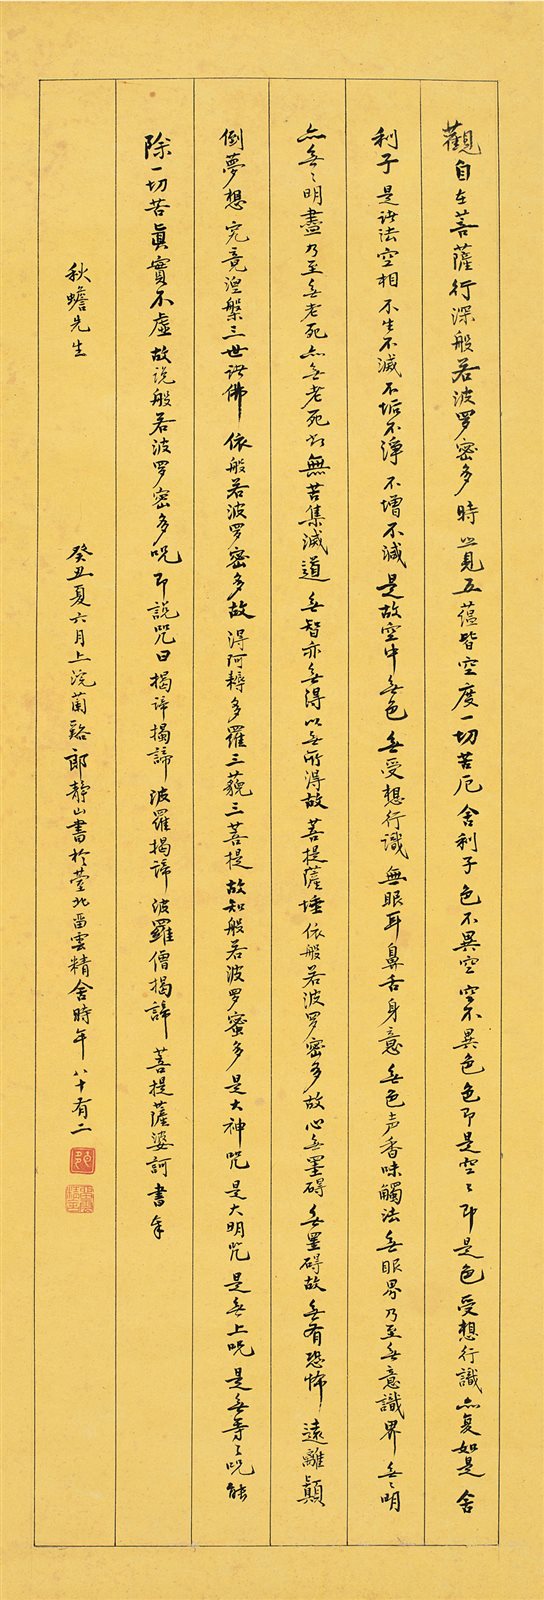 觀自在菩薩行深般若波罗密多時照見五蕴皆空度一切苦厄舍利子色不異空空不異色色即是空々即是色受想行識亦复如是舍
利子是诸法空相不生不滅不垢不淨不增不減是故空中無色無受想行識無眼耳鼻舌身意無色声香味觸法無眼界乃至無意識界無々明
亦無々明盡乃至無老死亦無老死尽無苦集滅道無智亦無得以無所得故菩提薩埵依般若波罗密多故心無罣碍無罣碍故無有恐怖遠離顛
倒夢想究竟涅槃三世诸佛依般若波罗密多故得阿耨多羅三藐三菩提故知般若波罗蜜多是大神咒是大明咒是無上咒是無等々咒能
除一切苦真實不虛故说般若波罗密多咒即説咒曰揭谛揭諦波羅揭谛波羅僧揭諦菩提薩婆訶書奉
秋蟾先生
癸丑夏六月上浣蘭谿郎静山書於臺北畱雲精舍時年八十有二